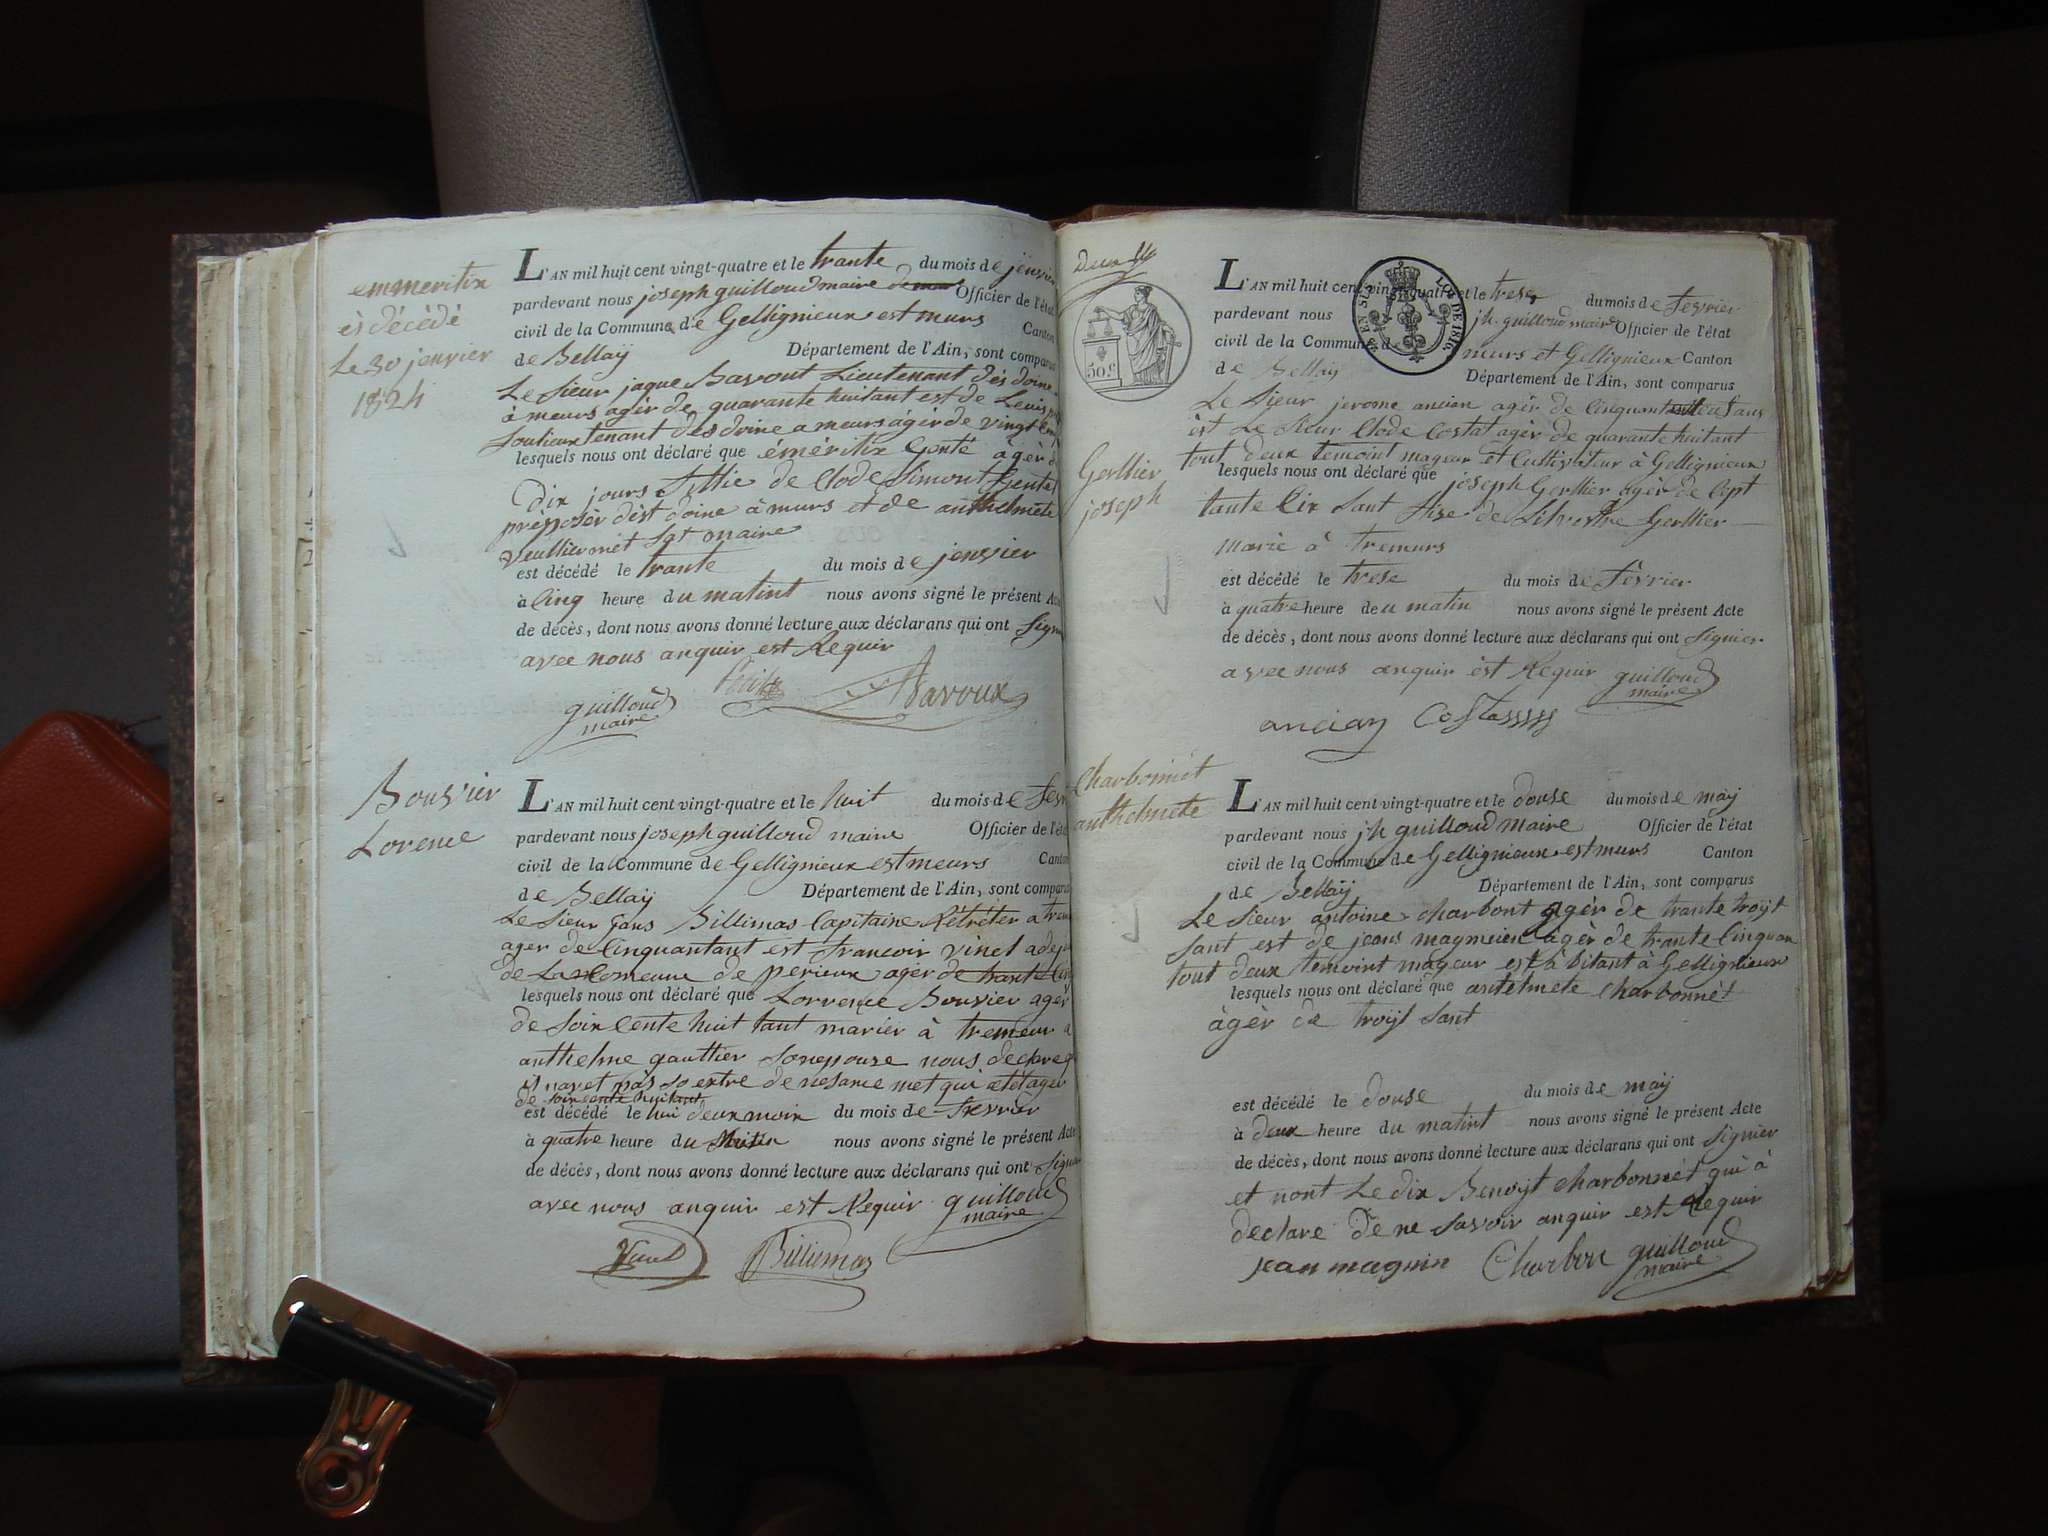 emmeritix
ès décédé
Le 30 jenvier
1824
L'AN mil huit cent vingt-quatre et le trante du mois de jenvier
pardevant nous joseph guilloud maire Officier de l'état
civil de la Commune de Gellignieux est murs Canton
de Bellaÿ Département de l'Ain, sont comparus
Le Sieur jaque Savout Lieutenant dès doine
à meurs agér de quarante huitant est de Leuis
Soulieuxtenant des doine a meurs ágér de vingt
lesquels nous ont déclaré que éméritix Genté àgèr
Dix jours fillie de Clode Simont Gentet
prépposér dèst doine à murs et de anthelmete
Veullermet Sgt maire
est décédé le trante du mois de jenvier
à Cinq heure du matint nous avons signé le présent Acte
de décès, dont nous avons donné lecture aux déclarans qui ont Signer
avec nous anquir est Requir
guilloud
maire
Savoux
Bouvier
Lorence
L'AN mil huit cent vingt-quatre et le huit du mois de fevr
pardevant nous joseph guilloud maire Officier de l'état
civil de la Commune de Gellignieux est meurs Canton
de Bellaÿ Département de l'Ain, sont comparus
Le Sieur jans Billimas Capitaine Rétréter a trem
ager de Cinquantant est francoir vinet adej
de La Comeune de perieux ager de trante
lesquels nous ont déclaré que Lorrence Bouvier ager
de Soix Cente huit tant marier à tremeur a
anthelme gauttier Sonepouse nous declare q
il navet pas so extre de nesance met qui a etét ager
de soix cente huitant
est décédé le hui deux moix du mois de fevrier
à quatre heure du Matin nous avons signé le présent Acte
de décès, dont nous avons donné lecture aux déclarans qui ont Signer
avec nous anquir est Requir guilloud
maire
Vinet Billimas
Deux
50.c
EN SUS LOI DE 1816.
L'AN mil huit cent vingt-quatre et le trese du mois de fevrier
pardevant nous jh. guilloud maire Officier de l'état
civil de la Commune de murs et Gellignieux Canton
de Bellaÿ Département de l'Ain, sont comparus
Le Sieur jerome ancian agér de Cinquant ans
èst Le Sieur Clode Costat agèr de quarante huitant
tout deux temoint mageur et Cultivateur à Gellignieux
Gerllier
joseph
lesquels nous ont déclaré que joseph Gerllier agèr de Cept
tante Cix Sant fise de Silvestre Gerllier
marie à tremurs
est décédé le trese du mois de fèvrier
à quatre heure deu matin nous avons signé le présent Acte
de décès, dont nous avons donné lecture aux déclarans qui ont Signier
avec nous anquir èst Requir guilloud
maire
ancian Costassss
Charbonnét
anthelmete
L'AN mil huit cent vingt-quatre et le douse du mois de maÿ
pardevant nous jh guilloud maire Officier de l'état
civil de la Commune de Gellignieux est murs Canton
de Bellaÿ Département de l'Ain, sont comparus
Le Sieur antoine charbont agér de trante troÿt
Sant est de jeans magmeien àgèr de trante Cinquan
tout deux temoint mageur est à bitant à Gellignieux
lesquels nous ont déclaré que antelmete Charbonnét
àgèr de troÿt Sant
est décédé le douse du mois de maÿ
à deux heure du matint nous avons signé le présent Acte
de décès, dont nous avons donné lecture aux déclarans qui ont Signier
et nont Le dix Benoÿt Charbonnét qui à
declare de ne savoir anquir est Requir
jean magnin Charbon guilloud
maire